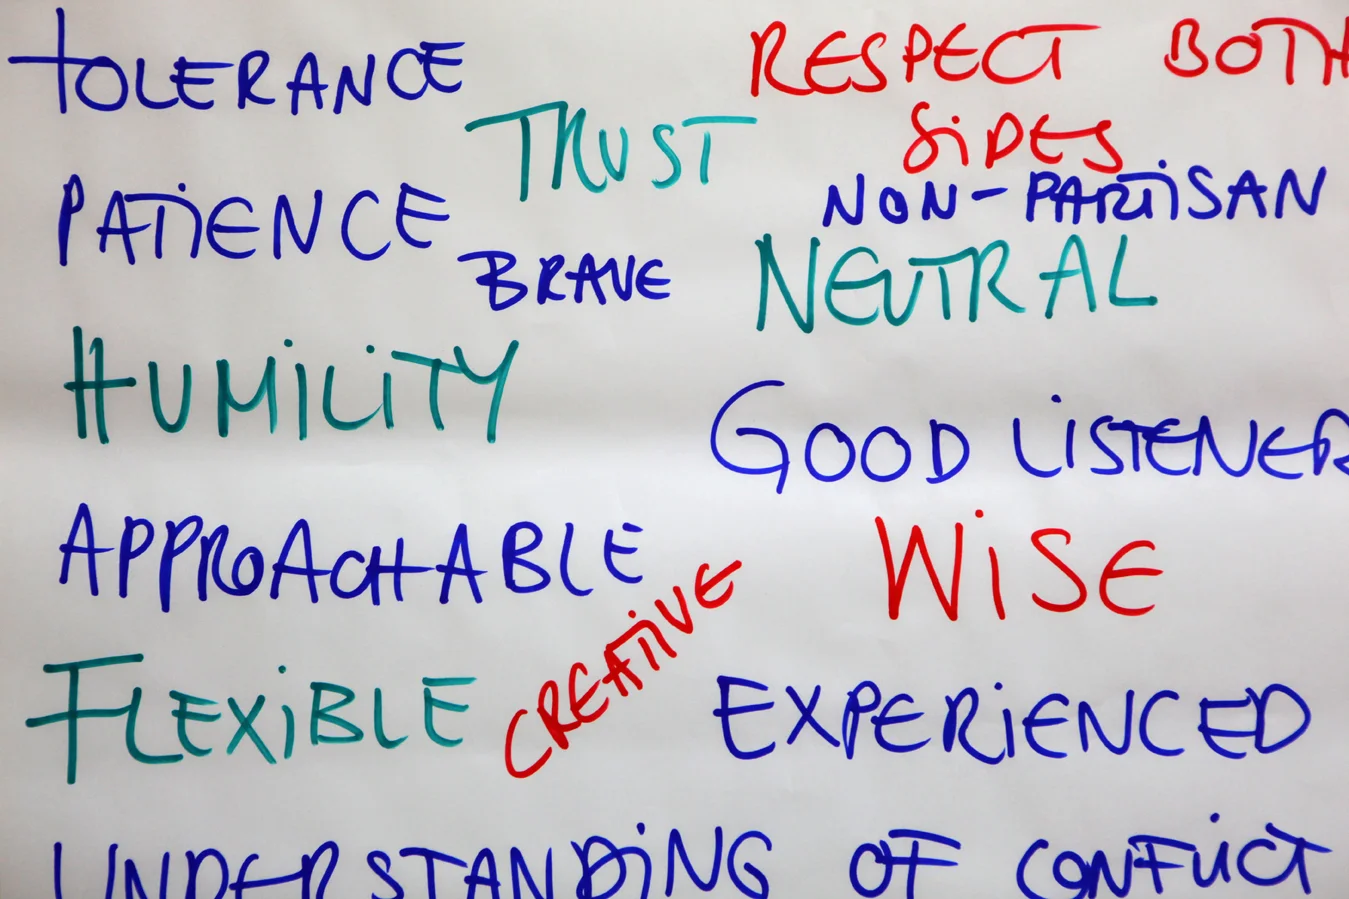 TOLERANCE
TRUST
RESPECT BOTH
SIDES
PATIENCE
NON-PARTISAN
BRAVE
NEUTRAL
HUMILITY
GOOD LISTENER
APPROACHABLE
WISE
CREATIVE
FLEXIBLE
EXPERIENCED
UNDERSTANDING OF CONFLICT